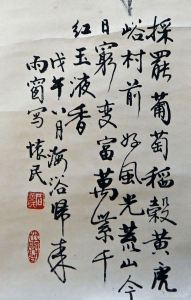 採罷葡萄稻穀黃虎
峪村前好風光荒山今
日窮變富萬紫千
紅玉液香
戊午八月海浴歸来
雨窗写懷民